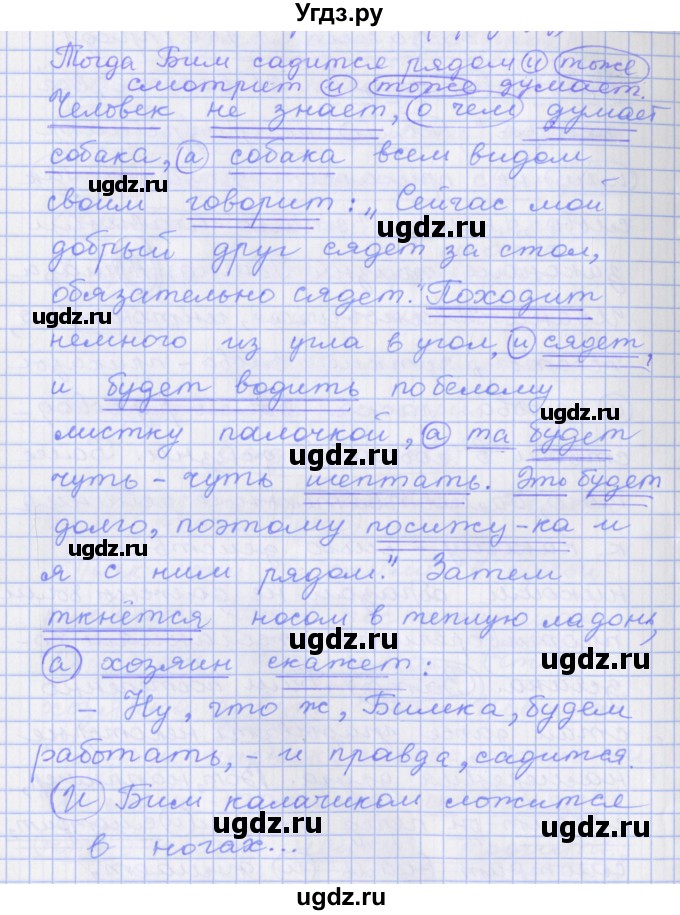 Угдз.ру
Тогда Бим садится рядом и тоже
смотрит и тоже думает.
Человек не знает, о чем думает
собака, а собака всем видом
своим говорит: „Сейчас мой
добрый друг сядет за стол,
обязательно сядет. Походит
немного из угла в угол, и сядет,
и будет водить по белому
листку палочкой, а та будет
чуть-чуть шептать. Это будет
долго, поэтому посижу-ка и
я с ним рядом." Затем
ткнётся носом в теплую ладонь,
а хозяин скажет:
- Ну, что ж, Бимка, будем
работать, - и правда, садится.
И Бим калачиком ложится
в ногах...
ugdz.ru
ugdz.ru
ugdz.ru
ugdz.ru
ugdz.ru
ugdz.ru
ugdz.ru
ugdz.ru
ugdz.ru
ugdz.ru
ugdz.ru
ugdz.ru
ugdz.ru
ugdz.ru